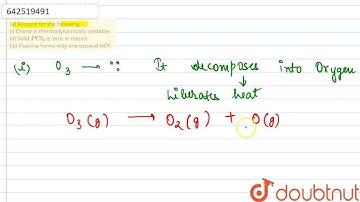 642519491
(a) Account for the following :
(i) Ozone is thermodynamically unstable.
(ii) Solid PCl₅ is ionic in nature.
(iii) Fluorine forms only one oxoacid HOF.
(i) O₃ → ∵ It decomposes into Oxygen
↓
Liberates heat
O₃(g) → O₂(g) + O(g)
doubtnut